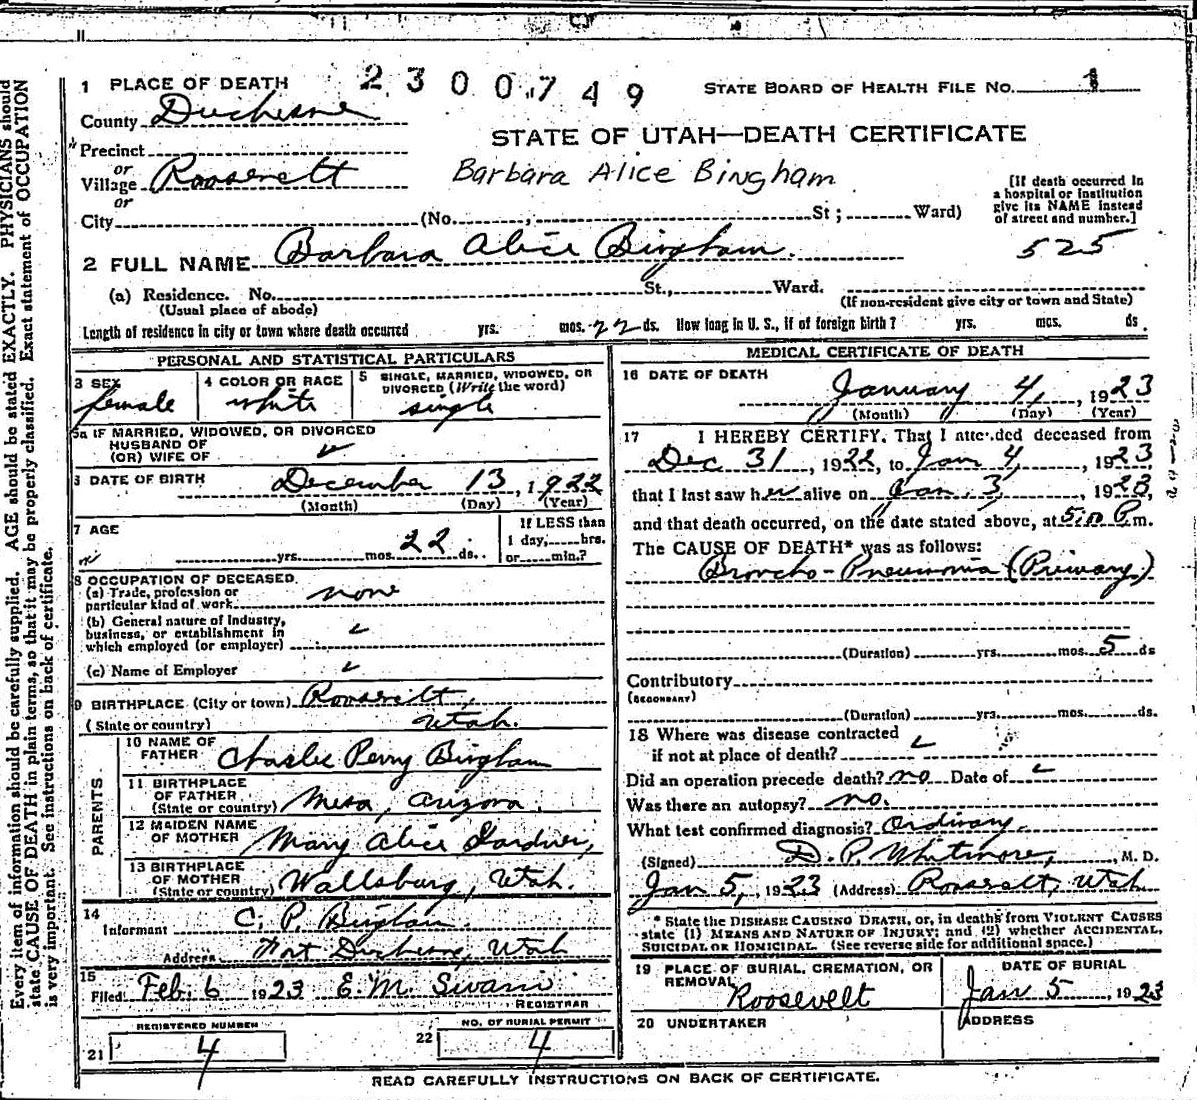 1 PLACE OF DEATH 2300749 STATE BOARD OF HEALTH FILE No. 1
County Duchesne
STATE OF UTAH—DEATH CERTIFICATE
Precinct
or
Village Roosevelt Barbara Alice Bingham
or
[If death occurred in
a hospital or institution
give its NAME instead
of street and number.]
City (No. , St ; Ward)
525
2 FULL NAME Barbara Alice Bingham.
(a) Residence. No. St., Ward.
(Usual place of abode) (If non-resident give city or town and State)
Length of residence in city or town where death occurred yrs. mos. 22 ds. How long in U. S., if of foreign birth ? yrs. mos. ds.
PERSONAL AND STATISTICAL PARTICULARS
3 SEX 4 COLOR OR RACE 5 SINGLE, MARRIED, WIDOWED, OR
DIVORCED (Write the word)
female white single
5a IF MARRIED, WIDOWED, OR DIVORCED
HUSBAND OF
(OR) WIFE OF
6 DATE OF BIRTH December 13, 1922
(Month) (Day) (Year)
7 AGE If LESS than
yrs. mos. 22 ds. 1 day, hrs.
or min.?
8 OCCUPATION OF DECEASED
(a) Trade, profession or
particular kind of work none
(b) General nature of Industry,
business, or establishment in
which employed (or employer)
(c) Name of Employer
9 BIRTHPLACE (City or town) Roosevelt,
(State or country) Utah.
PARENTS
10 NAME OF
FATHER Charlie Perry Bingham
11 BIRTHPLACE
OF FATHER
(State or country) Mesa, Arizona.
12 MAIDEN NAME
OF MOTHER Mary Alice Gardner,
13 BIRTHPLACE
OF MOTHER
(State or country) Wallsburg, Utah.
14
Informant C. P. Bingham.
Address Fort Duchesne, Utah
15
Filed Feb. 6 1923 E. M. Swain
REGISTRAR
REGISTERED NUMBER NO. OF BURIAL PERMIT
21 4 22 4
MEDICAL CERTIFICATE OF DEATH
16 DATE OF DEATH
January 4, 1923
(Month) (Day) (Year)
17 I HEREBY CERTIFY, That I attended deceased from
Dec 31, 1922, to Jan 4, 1923,
that I last saw her alive on Jan. 3, 1923,
and that death occurred, on the date stated above, at P.m.
The CAUSE OF DEATH* was as follows:
Broncho-Pneumonia (Primary.)
(Duration) yrs. mos. 5 ds
Contributory
(SECONDARY)
(Duration) yrs. mos. ds.
18 Where was disease contracted
if not at place of death?
Did an operation precede death? no Date of
Was there an autopsy? no.
What test confirmed diagnosis? Ordinary.
(Signed) D. P. Whitmore, M. D.
Jan 5, 1923 (Address) Roosevelt, Utah
* State the DISEASE CAUSING DEATH, or, in deaths from VIOLENT CAUSES
state (1) MEANS AND NATURE OF INJURY; and (2) whether ACCIDENTAL,
SUICIDAL OR HOMICIDAL. (See reverse side for additional space.)
19 PLACE OF BURIAL, CREMATION, OR
REMOVAL DATE OF BURIAL
Roosevelt Jan 5, 1923
20 UNDERTAKER ADDRESS
READ CAREFULLY INSTRUCTIONS ON BACK OF CERTIFICATE.
Every item of information should be carefully supplied. AGE should be stated EXACTLY. PHYSICIANS should
state CAUSE OF DEATH in plain terms, so that it may be properly classified. Exact statement of OCCUPATION
is very important. See instructions on back of certificate.